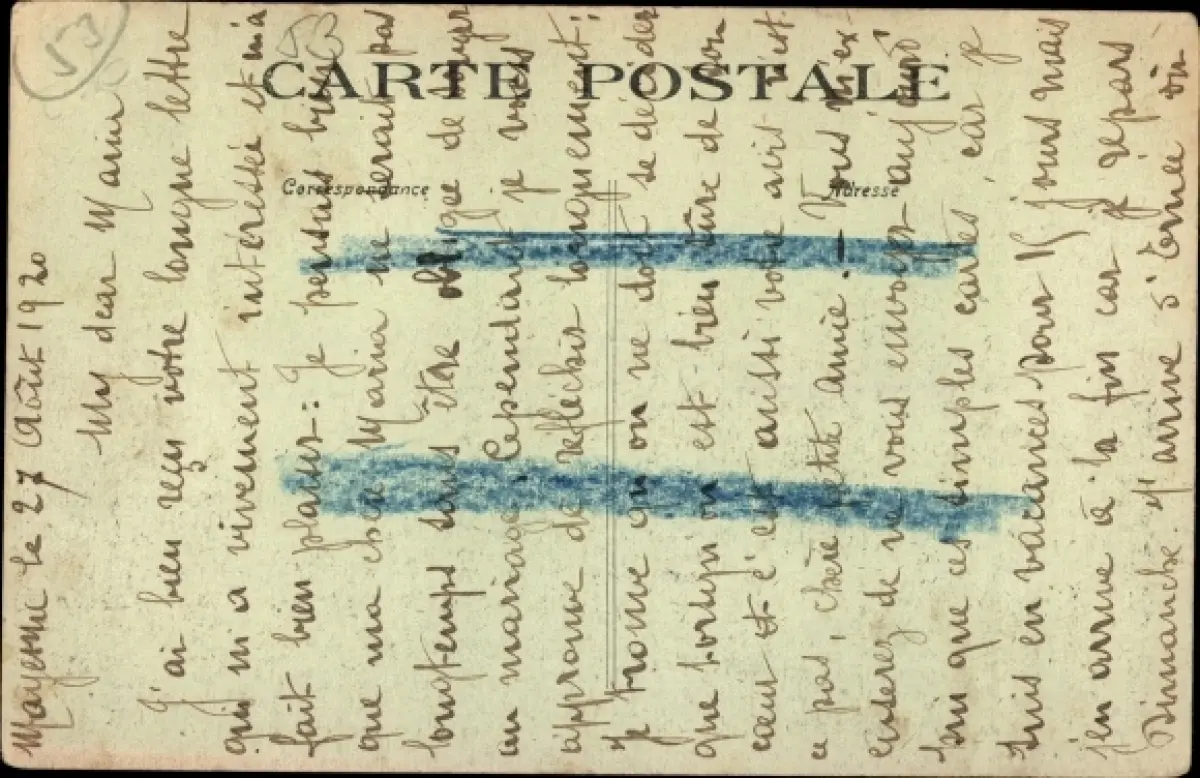 53
CARTE POSTALE
Correspondance
Adresse
Mayenne le 27 Août 1920
My dear Maria
J'ai bien reçu votre longue lettre
qui m'a vivement intéressée et m'a
fait bien plaisir : Je pensais bien
que ma chère Maria ne serait pas
longtemps sans être obligée de songer
au mariage. Cependant je vous
approuve de réfléchir longuement ;
je trouve qu'on ne doit se décider
que lorsqu'on est bien sûre de son
cœur et c'est aussi votre avis n'est
ce pas, chère petite amie. — Vous m'ex-
cuserez de ne vous envoyer aujourd'
hui que ces simples cartes car je
suis en vacances pour 15 jours mais
j'en arrive à la fin car je repars
Dimanche. M'arrive